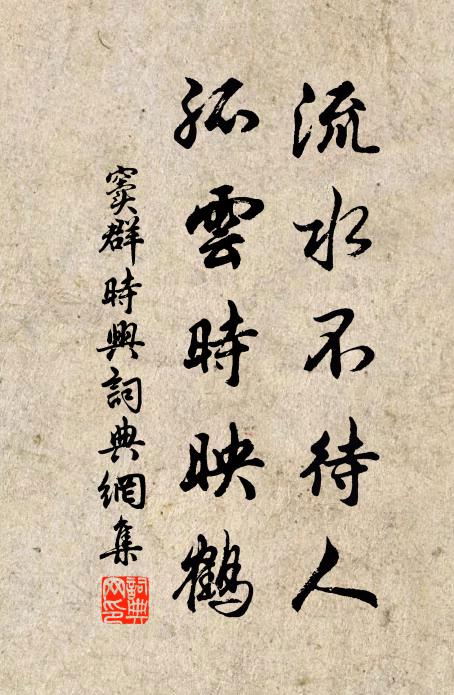 流水不待人
孤雲時映鶴
竇群時興詞典網集
詞典网印